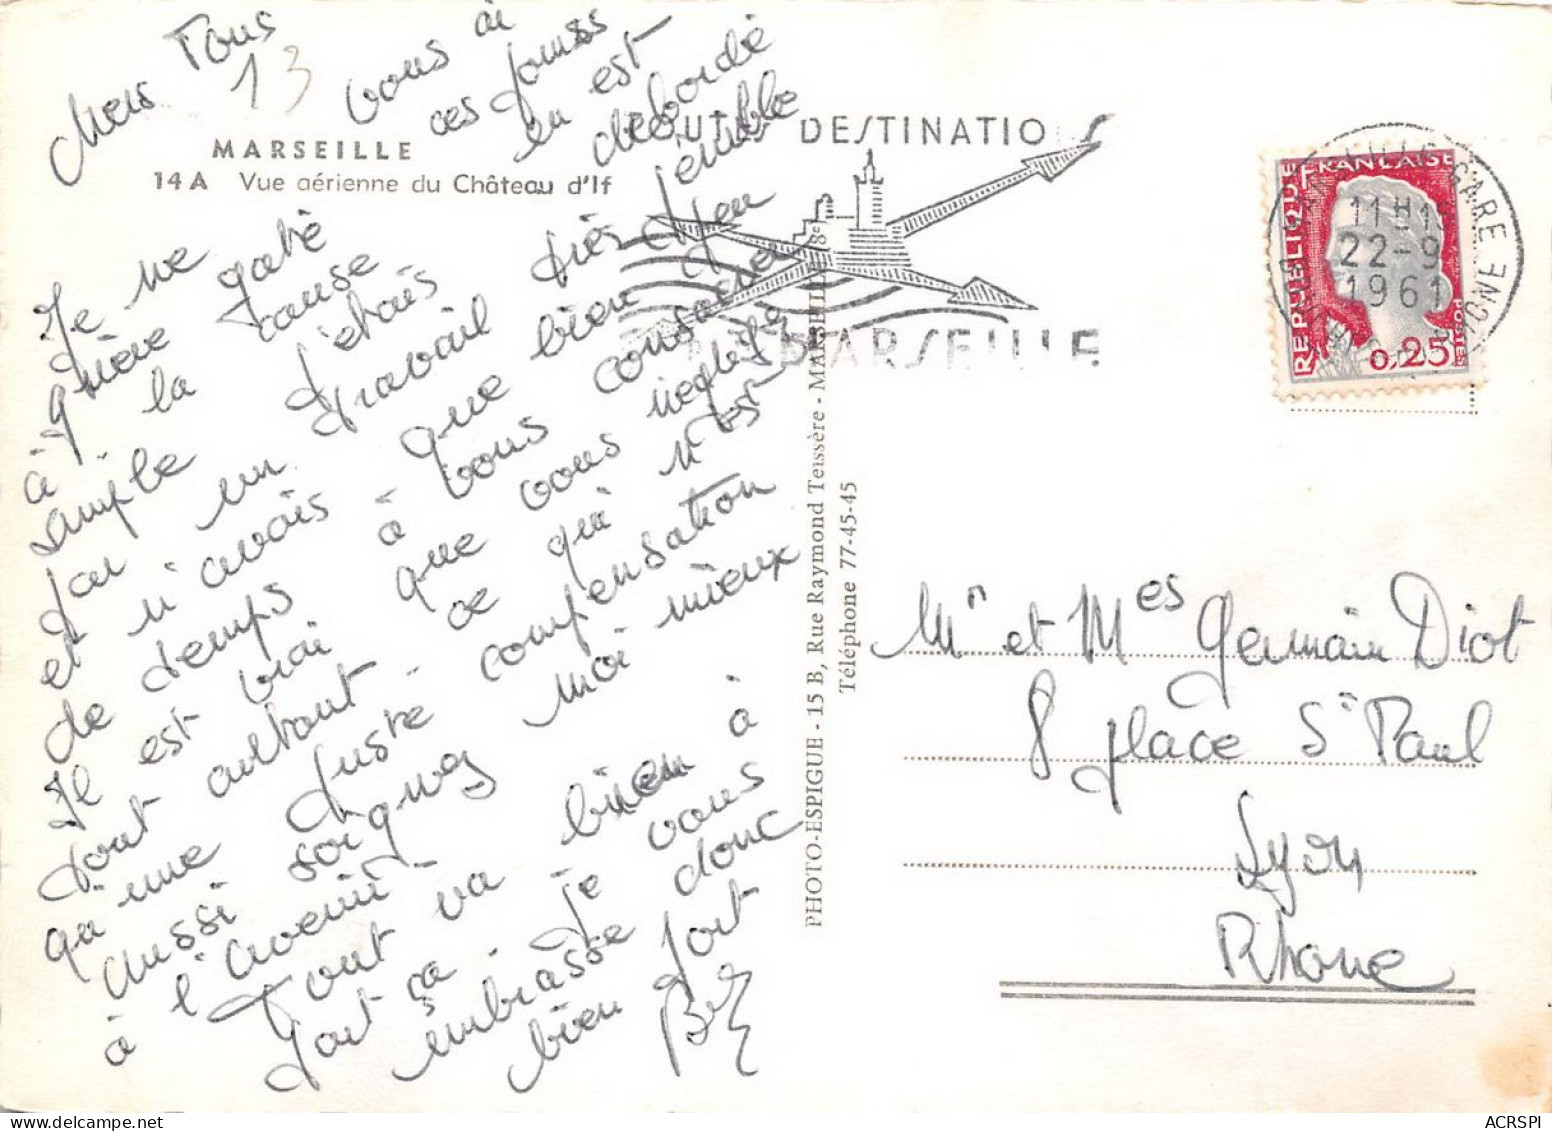 Chers Tous
13
MARSEILLE
14 A Vue aérienne du Château d'If
Je ne vous ai
guère gaté ces jours
à la cause en est
simple j'etais débordé
j'ai un travail très pénible
et n'avais que bien peu
de temps à vous consacrer
Il est vrai que vous negliger
tout autant ce qui n'est
qu'une juste compensation
aussi soignez moi mieux
à l'avenir -
Tout va bien à
part ça - je vous
embrasse donc
bien fort
TOUTES DESTINATIONS
MARSEILLE
PHOTO-ESPIGUE - 15 B, Rue Raymond Teissère - MARSEILLE 8e
Téléphone 77-45-45
GARE
11H15
22-9
1961
RÉPUBLIQUE FRANÇAISE
POSTES
0,25
Mr et Mes Germain Diot
8 place St Paul
Lyon
Rhone
ACRSPI